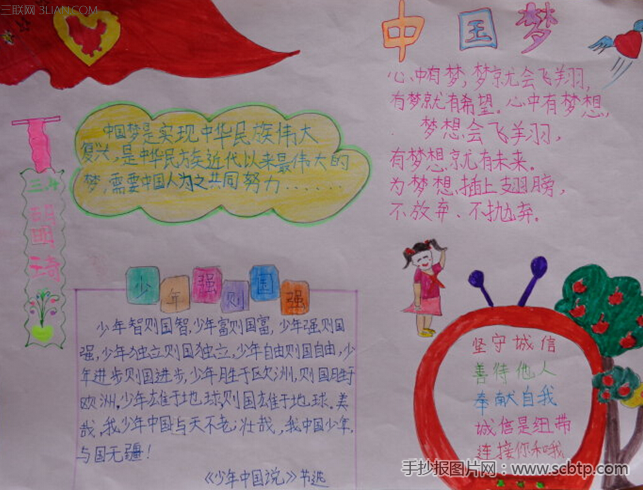 三联网 3LIAN.COM
中国梦
心中有梦,梦就会飞翔,
有梦就有希望。心中有梦想,
梦想会飞翔,
有梦想,就有未来。
为梦想插上翅膀,
不放弃、不抛弃。
中国梦是实现中华民族伟大
复兴,是中华民族近代以来最伟大的
梦,需要中国人为之共同努力......
少年强则国强
少年智则国智,少年富则国富,少年强则国
强,少年独立则国独立,少年自由则国自由,少
年进步则国进步,少年胜于欧洲,则国胜于
欧洲,少年雄于地球,则国雄于地球。美
哉,我少年中国与天不老;壮哉,我中国少年,
与国无疆!
《少年中国说》节选
坚守诚信
善待他人
奉献自我
诚信是纽带
连接你和我
手抄报图片网:www.scbtp.com